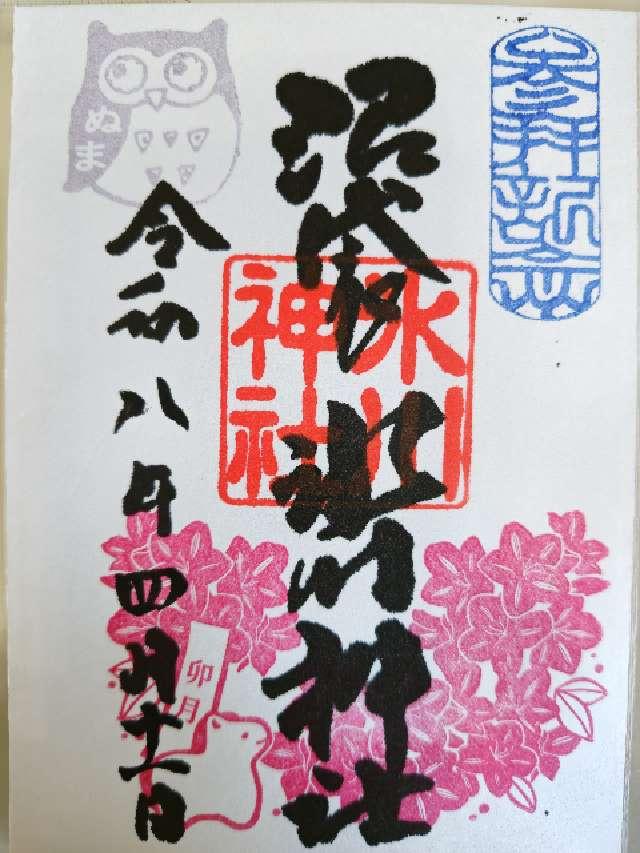 参拝記念
沼袋氷川神社
氷川神社
令和八年四月十二日
ぬま
卯月